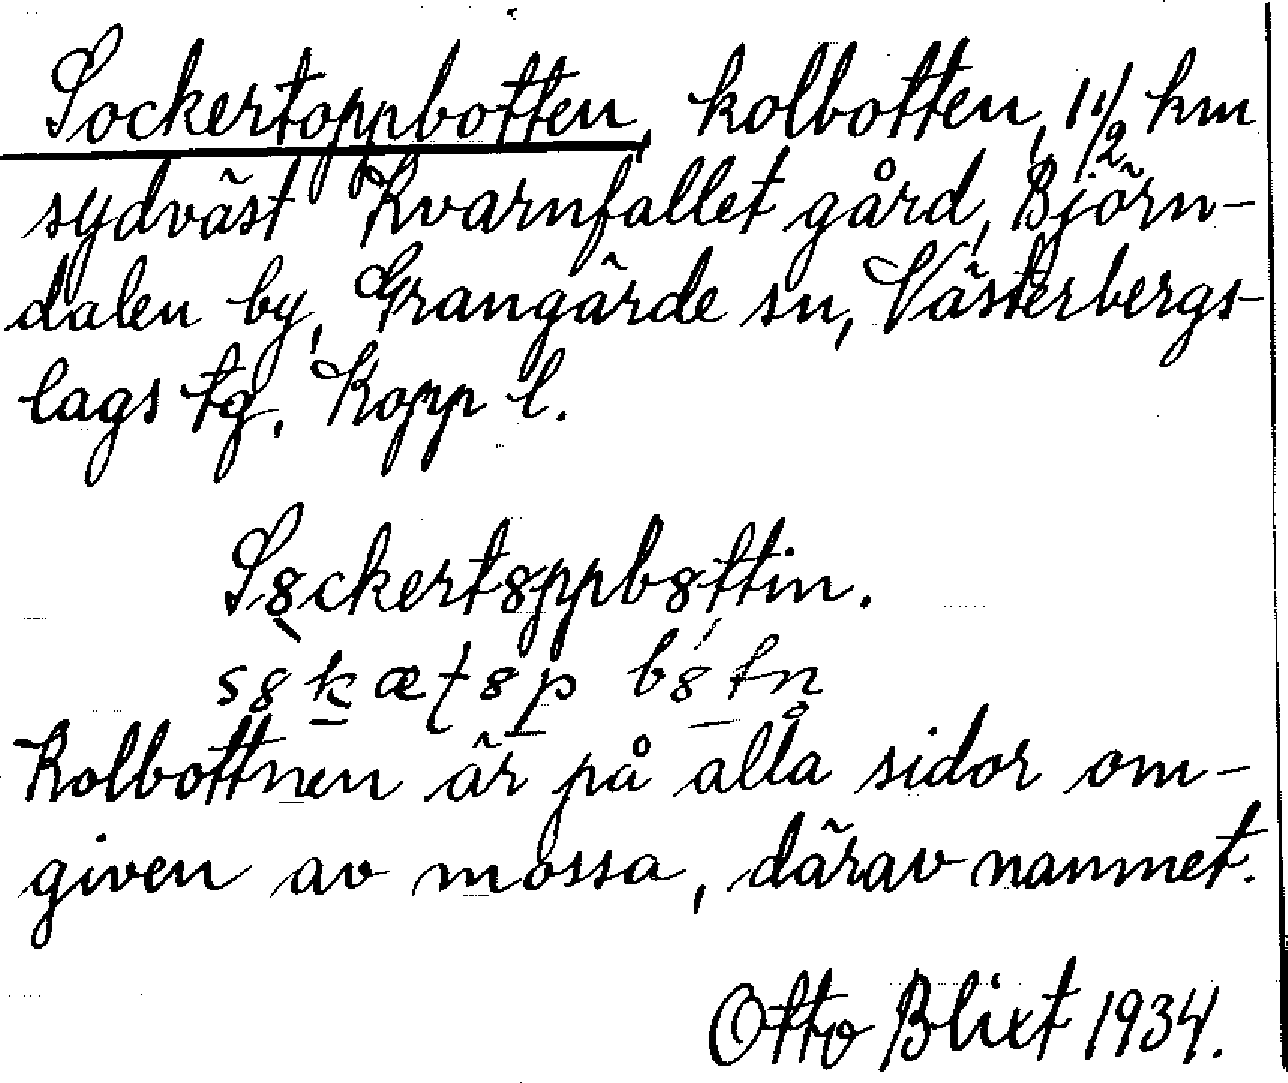 Sockertoppbotten, kolbotten, 1 1/2 km
sydväst Kvarnfallet gård, Björn-
dalen by, Grangärde sn, Västerbergs-
lags tg. Kopp l.
S8ckert8ppb8ttin.
s8kæt8p b8tn̥
Kolbottnen är på alla sidor om-
given av mossa, därav namnet.
Otto Blixt 1934.